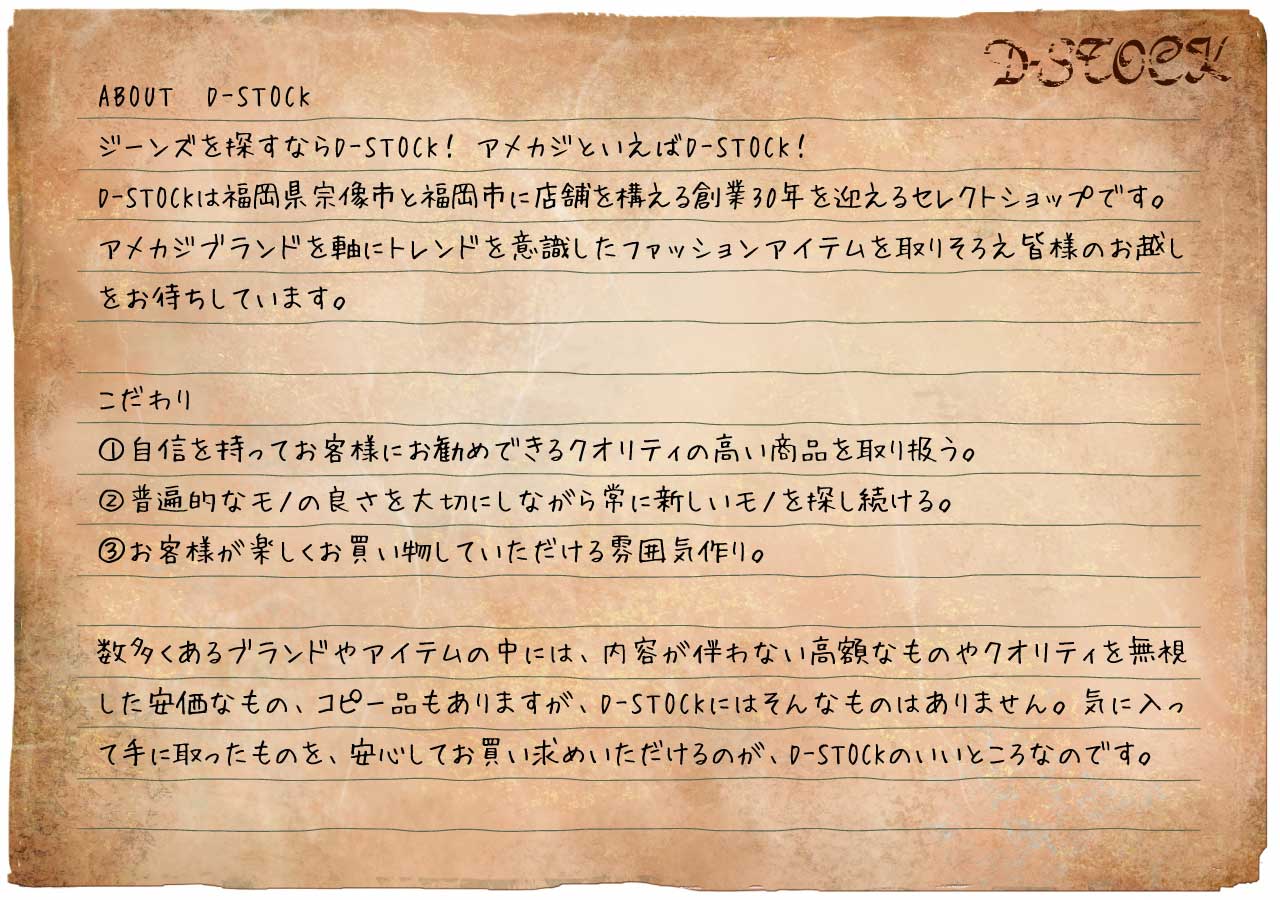 D-STOCK
ABOUT　D-STOCK
ジーンズを探すならD-STOCK！ アメカジといえばD-STOCK！
D-STOCKは福岡県宗像市と福岡市に店舗を構える創業30年を迎えるセレクトショップです。
アメカジブランドを軸にトレンドを意識したファッションアイテムを取りそろえ皆様のお越し
をお待ちしています。
こだわり
①自信を持ってお客様にお勧めできるクオリティの高い商品を取り扱う。
②普遍的なモノの良さを大切にしながら常に新しいモノを探し続ける。
③お客様が楽しくお買い物していただける雰囲気作り。
数多くあるブランドやアイテムの中には、内容が伴わない高額なものやクオリティを無視
した安価なもの、コピー品もありますが、D-STOCKにはそんなものはありません。気に入っ
て手に取ったものを、安心してお買い求めいただけるのが、D-STOCKのいいところなのです。